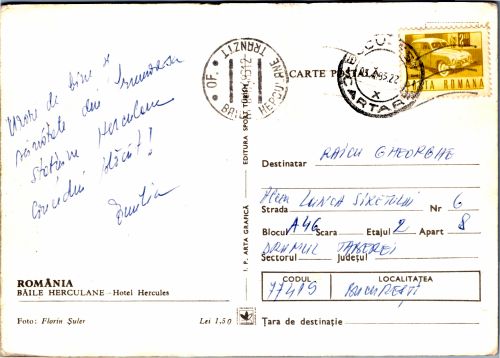 Urare de bine și
sănătate din frumoasa
stațiune Herculane
Concediu plăcut!
Emilia
ROMÂNIA
BĂILE HERCULANE - Hotel Hercules
Foto: Florin Șuler
Lei 1,50
EDITURA SPORT TURISM
I. P. ARTA GRAFICĂ
OF.
TRANZIT
CARTE POȘTALĂ
POȘTA ROMANA
Destinatar RAICU GHEORGHE
Aleea LUNCA SIRETULUI
Strada Nr 6
Blocul A46 Scara Etajul 2 Apart 8
DRUMUL TABEREI
Sectorul Județul
CODUL LOCALITATEA
77419 BUCUREȘTI
Țara de destinație